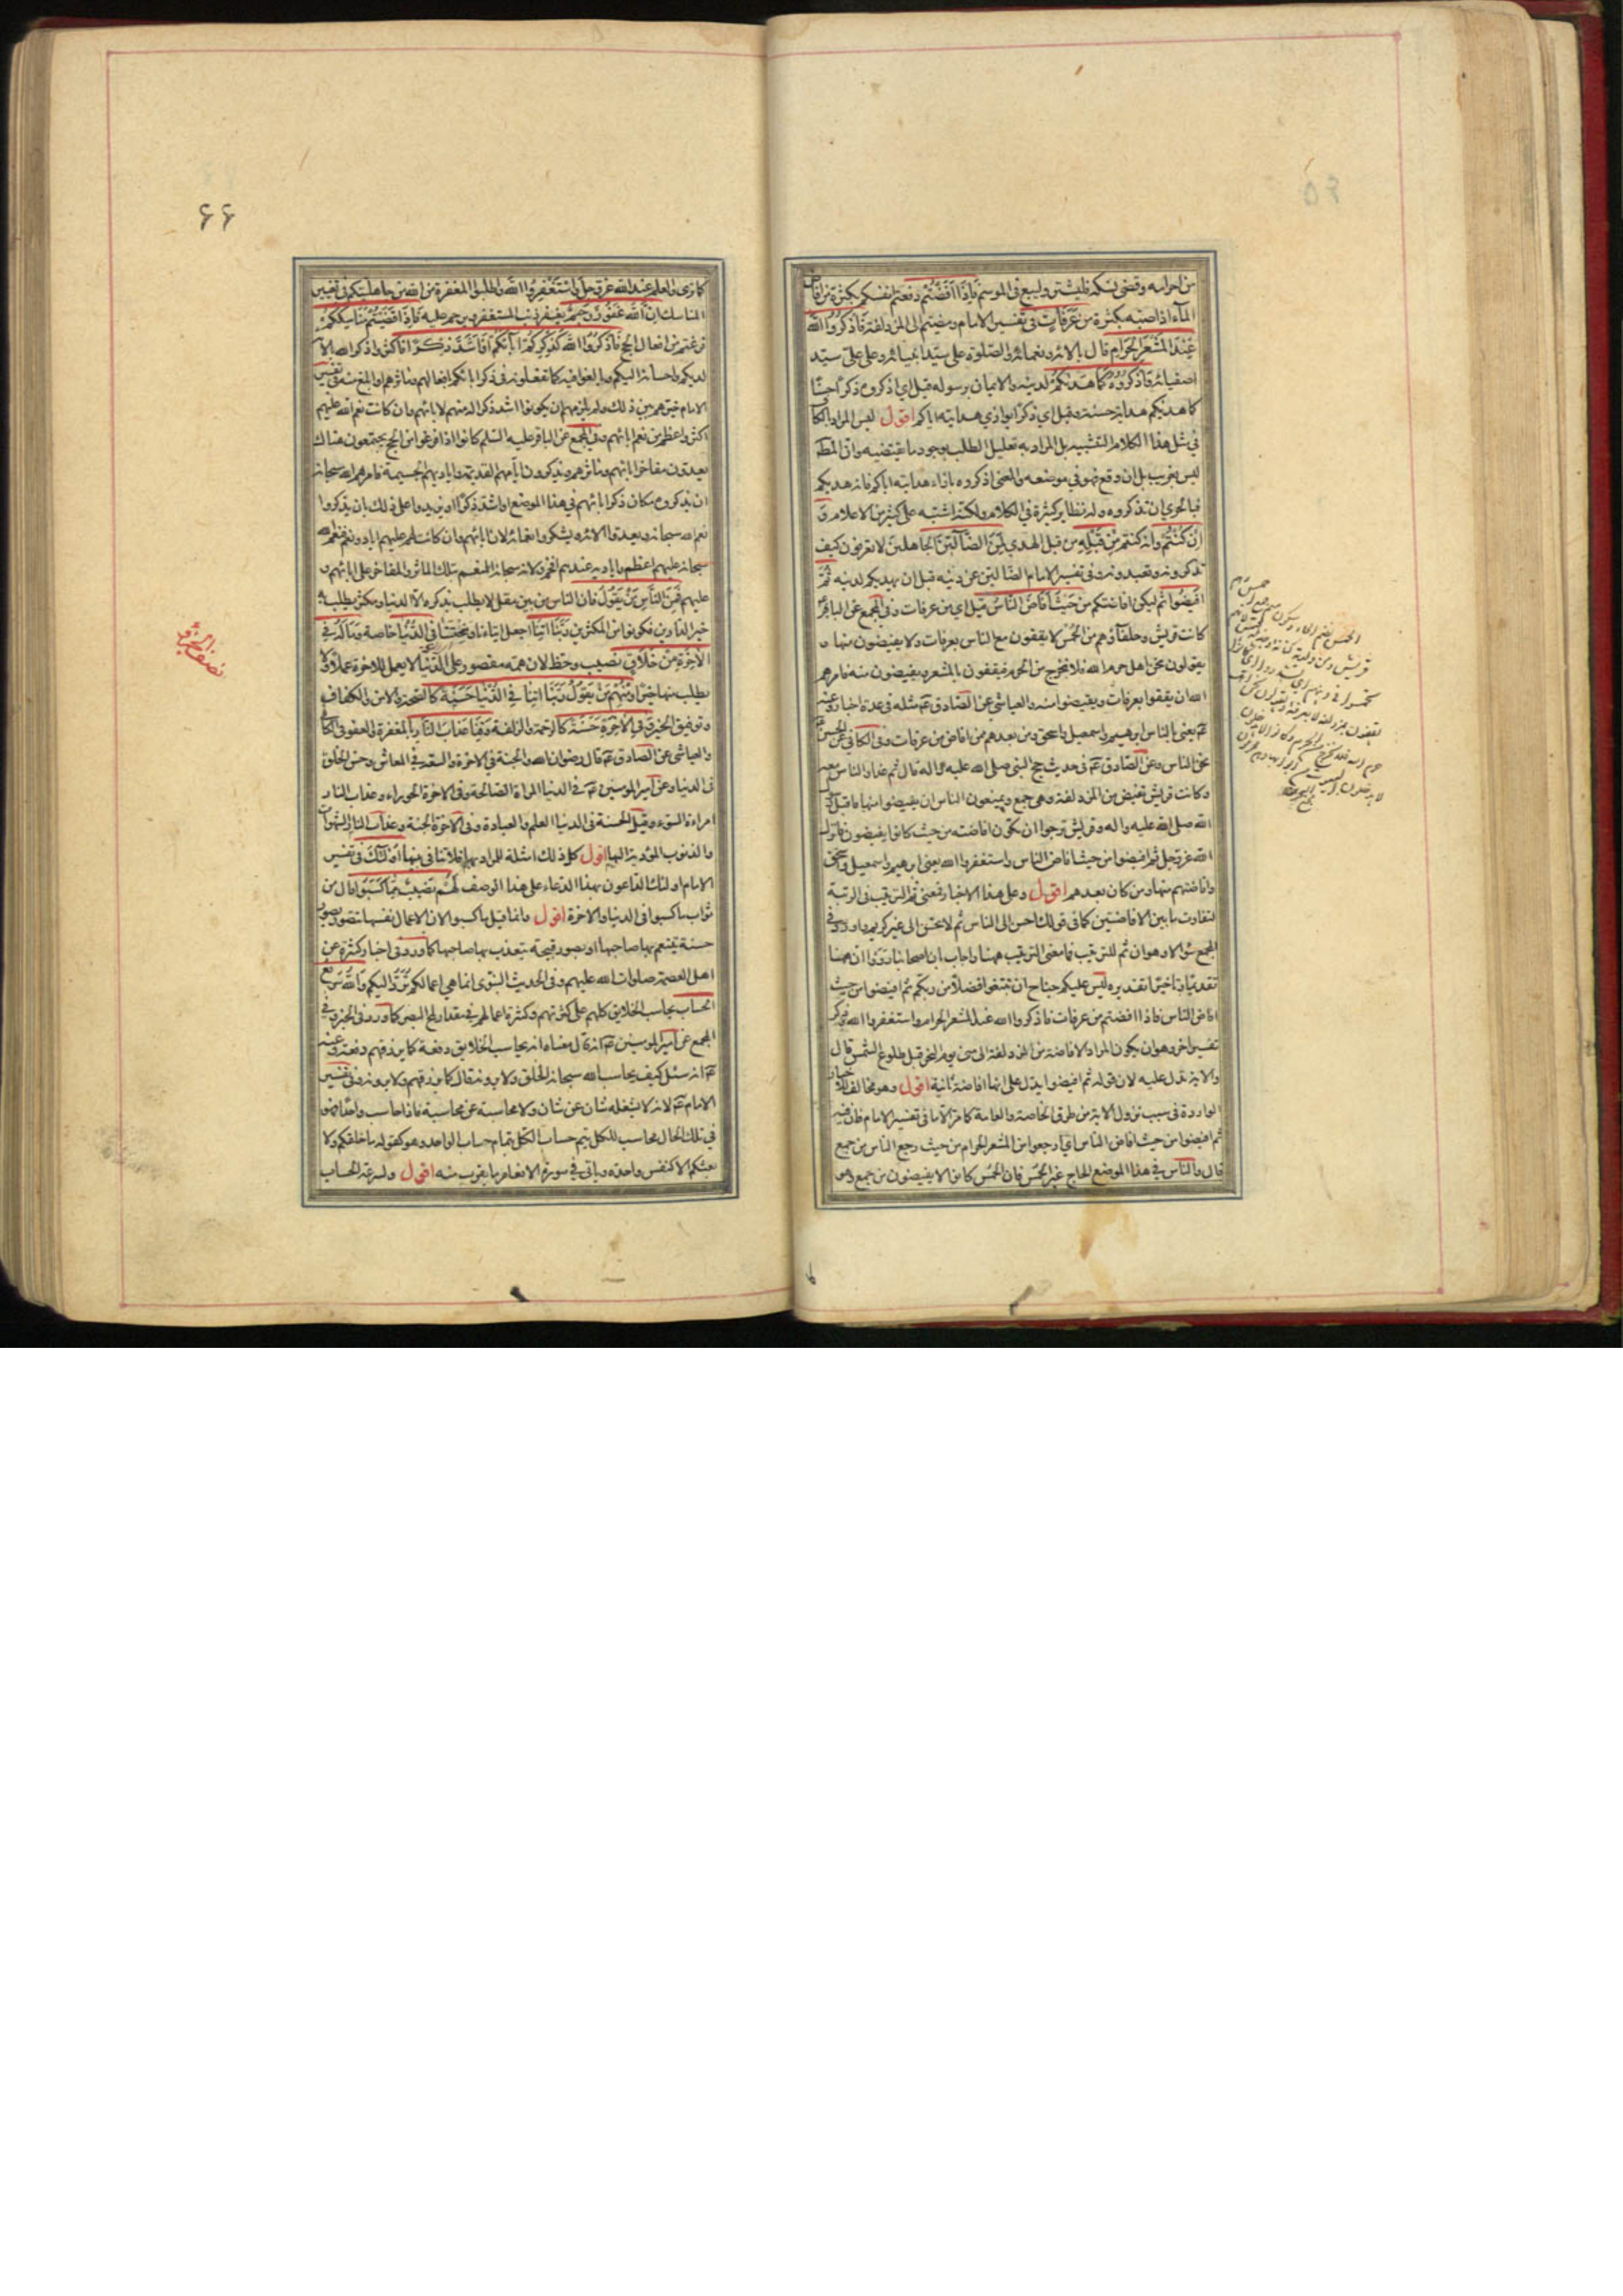 من احرامه وقضى نسكه فليشتر وليبع في الموسم فَاِذَا اَفَضْتُمْ دفعتم انفسكم بكثرة من افاض
الماء اذا صبه بكثرة مِنْ عَرَفَاتٍ في تفسير الامام ومضيتم الى المزدلفة فَاذْكُرُوا اللّٰهَ
عِنْدَ الْمَشْعَرِ الْحَرَامِ قال بالائه ونعمائه والصلوة على سيد انبيائه وعلى علي سيد
اصفيائه وَاذْكُرُوهُ كَمَا هَدٰيكُمْ لدينه والايمان برسوله قيل اي اذكروه ذكرا حسنا
كما هديكم هداية حسنة وقيل اي ذكرا يوازي هدايته اياكم اقول ليس المراد بالكاف
في مثل هذا الكلام التشبيه بل المراد به تعليل الطلب بوجود ما يقتضيه وان المطلوب
ليس بغريب بل ان وقع فهو في موضعه والمعنى اذكروه بازاء هدايته اياكم فانه هديكم
فبالحري ان تذكروه وله نظاير كثيرة في الكلام ولكنه اشتبه على كثير من الاعلام وَ
اِنْ كُنْتُمْ وانه كنتم مِنْ قَبْلِهِ من قبل الهدي لَمِنَ الضَّآلِّينَ الجاهلين لا تعرفون كيف
تذكرونه وتعبدونه وفي تفسير الامام الضالين عن دينه قبل ان يهديكم لدينه ثُمَّ
اَفِيضُوا ثم ليكن افاضتكم مِنْ حَيْثُ اَفَاضَ النَّاسُ قيل اي من عرفات وفي المجمع عن الباقر ع
كانت قريش وحلفاؤهم من الحمس لا يقفون مع الناس بعرفات ولا يفيضون منها و
يقولون نحن اهل حرم الله فلا نخرج من الحرم فيقفون بالمشعر ويفيضون منه فامرهم
الله ان يقفوا بعرفات ويفيضوا منه والعياشي عن الصادق ع مثله في عدة اخبار وعنه
ع يعني بالناس ابرهيم واسمعيل واسحق ومن بعدهم ممن افاض من عرفات وفي الكافي عن الحسين ع
نحن الناس وعن الصادق ع في حديث حج النبي صلى الله عليه واله قال ثم غدا والناس معه
وكانت قريش تفيض من المزدلفة وهي جمع ويمنعون الناس ان يفيضوا منها فاقبل رسول
الله صلى الله عليه واله وقريش ترجوا ان تكون افاضته من حيث كانوا يفيضون فانزل
الله عز وجل ثم افيضوا من حيث افاض الناس واستغفروا الله يعني ابرهيم واسمعيل واسحق
وافاضتهم منها ومن كان بعدهم اقول وعلى هذا الاخبار فمعنى ثم الترتيب في الرتبة
لتفاوت ما بين الافاضتين كما في قولك احسن الى الناس ثم لا تحسن الى غير كريم واورد في
المجمع سؤالا وهو ان ثم للترتيب فما معنى الترتيب ههنا واجاب ان اصحابنا رووا ان ههنا
تقديما وتاخيرا تقديره ليس عليكم جناح ان تبتغوا فضلا من ربكم ثم افيضوا من حيث
افاض الناس فاذا افضتم من عرفات فاذكروا الله عند المشعر الحرام واستغفروا الله وذكر
تفسير اخر وهو ان يكون المراد الافاضة من المزدلفة الى منى يوم النحر قبل طلوع الشمس قال
والاية تدل عليه لان قوله ثم افيضوا يدل على انها افاضة ثانية اقول وهو مخالف للاخبار
الواردة في سبب نزول الاية من طرق الخاصة والعامة كما مر الا ما في تفسير الامام فان فيه
ثم افيضوا من حيث افاض الناس اي ارجعوا من المشعر الحرام من حيث رجع الناس من جمع
قال والناس في هذا الموضع الحاج غير الحمس فان الحمس كانوا لا يفيضون من جمع وهو
الحمس بضم الحاء وسكون الميم
٦٦
كما ترى والعلم عند الله عز وجل وَاسْتَغْفِرُوا اللّٰهَ واطلبوا المغفرة من الله من جاهليتكم في تغيير
المناسك اِنَّ اللّٰهَ غَفُورٌ رَحِيمٌ يغفر ذنب المستغفر ويرحم عليه فَاِذَا قَضَيْتُمْ مَنَاسِكَكُمْ
فرغتم من افعال الحج فَاذْكُرُوا اللّٰهَ كَذِكْرِكُمْ اٰبَآءَكُمْ اَوْ اَشَدَّ ذِكْرًا فاكثروا ذكر الله والاءه
لديكم واحسانه اليكم وبالغوا فيه كما تفعلونه في ذكر ابائكم افعالهم ومآثرهم او ابلغ منه في تفسير
الامام خيرهم بين ذلك ولم يلزمهم ان يكونوا اشد ذكرا له منهم لابائهم وان كانت نعم الله عليهم
اكثر واعظم من نعم ابائهم وفي المجمع عن الباقر عليه السلم كانوا اذا فرغوا من الحج يجتمعون هناك
يعدون مفاخر ابائهم ومآثرهم ويذكرون ايامهم القديمة واياديهم الجسيمة فامرهم الله سبحانه
ان يذكروه مكان ذكر ابائهم في هذا الموضع او اشد ذكرا او يزيدوا على ذلك بان يذكروا
نعم الله سبحانه ويعدوا الائه ويشكروا نعمائه لان ابائهم وان كانت لهم عليهم اياد ونعم فنعم الله
سبحانه عليهم اعظم واياديه عندهم افخم ولانه سبحانه المنعم بتلك المآثر والمفاخر على ابائهم و
عليهم فَمِنَ النَّاسِ مَنْ يَقُولُ فان الناس من بين مقل لا يطلب بذكره الا الدنيا ومكثر يطلب به
خير الدارين فكونوا من المكثرين رَبَّنَا اٰتِنَا اجعل ايتاءنا ومنحتنا فِي الدُّنْيَا خاصة وَمَا لَهُ فِي
الْاٰخِرَةِ مِنْ خَلَاقٍ نصيب وحظ لان همه مقصور على الدنيا لا يعمل للاخرة عملا ولا
يطلب منها خيرا وَمِنْهُمْ مَنْ يَقُولُ رَبَّنَا اٰتِنَا فِي الدُّنْيَا حَسَنَةً كالصحة والامن والكفاف
وتوفيق الخير وَفِي الْاٰخِرَةِ حَسَنَةً كالرحمة والزلفة وَقِنَا عَذَابَ النَّارِ بالمغفرة والعفو في الكافي
والعياشي عن الصادق ع قال رضوان الله والجنة في الاخرة والسعة في المعاش وحسن الخلق
في الدنيا وعن امير المؤمنين ع في الدنيا المراة الصالحة وفي الاخرة الحوراء وعذاب النار
امراءة السوء وقيل الحسنة في الدنيا العلم والعبادة وفي الاخرة الجنة وعذاب النار الشهوات
والذنوب المؤدية اليها اقول كل ذلك امثلة للمراد بها فلا تنافي بينها اُولٰئِكَ في تفسير
الامام اولئك الداعون بهذا الدعاء على هذا الوصف لَهُمْ نَصِيبٌ مِمَّا كَسَبُوا قال من
ثواب ما كسبوا في الدنيا والاخرة اقول وانما قيل ما كسبوا لان الاعمال بنفسها تتصور بصور
حسنة يتنعم بها صاحبها او بصور قبيحة يتعذب بها صاحبها كما ورد في اخبار كثيرة عن
اهل العصمة صلوات الله عليهم وفي الحديث النبوي انما هي اعمالكم تُرَدُّ اليكم وَاللّٰهُ سَرِيعُ
الْحِسَابِ يحاسب الخلايق كلهم على كثرتهم وكثرة اعمالهم في مقدار لمح البصر كما ورد في الخبر وفي
المجمع عن امير المؤمنين ع انه قال معناه انه يحاسب الخلايق دفعة كما يرزقهم دفعة وعنه
ع انه سئل كيف يحاسب الله سبحانه الخلق ولا يرونه قال كما يرزقهم ولا يرونه وفي تفسير
الامام ع لانه لا يشغله شان عن شان ولا محاسبة عن محاسبة فاذا حاسب واحدا فهو
في تلك الحال محاسب للكل يتم حساب الكل بتمام حساب الواحد وهو كقوله ما خلقكم ولا
بعثكم الا كنفس واحدة وياتي في سورة الانعام ما يقرب منه اقول ولسرعة الحساب
نصف الجزو